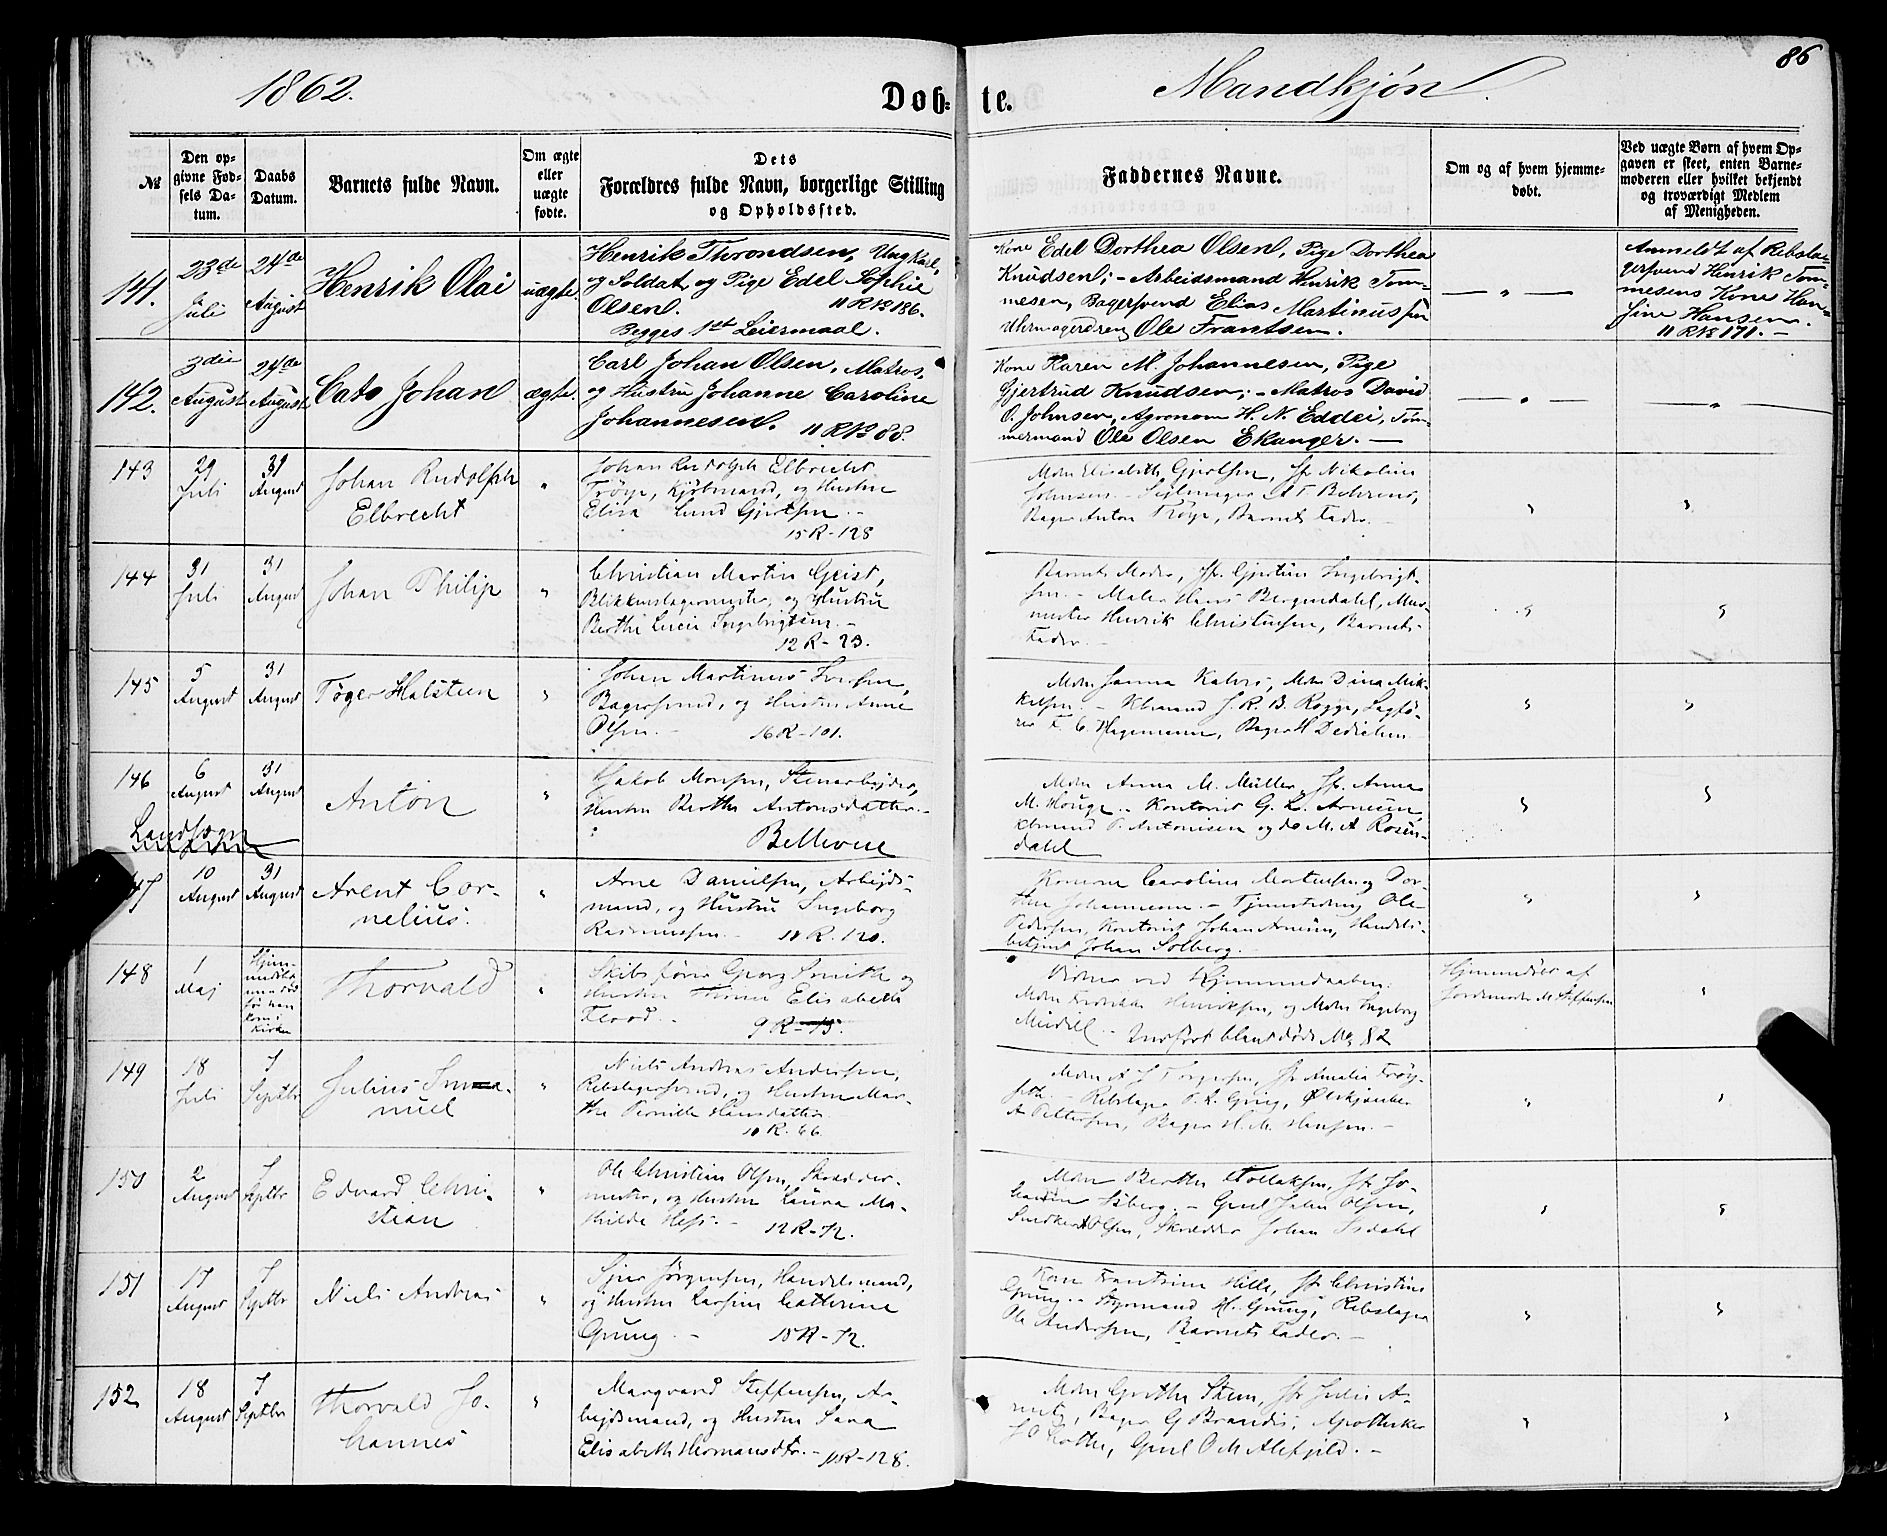 86
1862.
Døb-te.
Mandkjøn.
№
Den op-
givne Fød-
sels Da-
tum.
Daabs
Datum.
Barnets fulde Navn.
Om ægte
eller
uægte
fødte.
Dets
Forældres fulde Navn, borgerlige Stilling
og Opholdssted.
Faddernes Navne.
Om og af hvem hjemme-
døbt.
Ved uægte Børn af hvem Op-
gaven er skeet, enten Barne-
moderen eller hvilket bekjendt
og troværdigt Medlem
af Menigheden.
141.
23de
Juli
24de
August
Henrik Olai
uægte.
Henrik Throndsen, Ungkarl,
og Soldat, og Pige Edel Sophie
Olsen. 11 R№ 186.
Begges 1st Leiermaal.
Kone Edel Dorthea Olsen, Pige Dorthea
Knudsen; - Arbeidsmand Henrik Tom-
mesen, Bagersvend Elias Martinussen
Uhrmagerdreng Ole Frantsen.
— " —
Anmeldt af Rebsla-
gersvend Henrik Tom-
mesens Kone Han-
sine Hansen.
11 R№ 171. -
142.
3die
August
24de
August
Cato Johan
ægte.
Carl Johan Olsen, Matros,
og Hustru Johanne Caroline
Johannesen. 11 R№ 88.
Kone Karen M. Johannesen, Pige
Gjertrud Knudsen; - Matros David
O. Johnsen, Agronom H. N. Eddei, Tøm-
mermand Ole Olsen Ekanger. —
— " —
— " —
143
29
Juli
31
August
Johan Rudolph
Elbrecht
"
Johan Rudolph Elbrecht
Trøye, Kjøbmand, og Hustru
Elisa Lund Gjertsen. -
15 R - 128
Mdm Elisabeth Gjertsen, Jfr Nikoline
Johnsen. - Seilmager A F Behrens,
Bager Anton Trøye, Barnets Fader. -
"
"
144
31
Juli
31
August
Johan Philip
"
Christian Martin Geist,
Blikkenslagermester, og Hustru
Berthe Lucie Ingebrigtsen. -
12 R - 23.
Barnets Moder, Jfr Gjertine Ingebrigt-
sen. - Maler Hans Bergendahl, Mur-
mester Henrik Christensen, Barnets
Fader. -
"
"
145
5
August
31
August
Tøger Halsteen
"
Johan Martinus
Bagersvend, og Hustru Anne
Olsen. - 16 R - 101.
Mdm Janna Mdm Dina Mik-
kelsen. - Kbmand J. R. B. Rogge, Sagfø-
rer F. C. Hagemann, Bager H Dedichen
"
"
146
6
August
31
August
Anton
"
Jakob Monsen, Stenarbejder,
Hustru Berthe Antonsdatter. -
Bellevue
Mdm Anna M. Müller, Jfr Anna
M. Houge. - Kontorist G. L. Arnesen
Kbmand T. Antonisen og do M. A Rosen-
dahl
"
"
Landsogn
147
10
August
31
August
Arent Cor-
nelius.
"
Arne Danielsen, Arbejds-
mand, og Hustru Ingeborg
Rasmussen. - 11 R. 120.
Konerne Caroline Mortensen og Dor-
thea Johannesen. - Tjenestedreng Ole
Pedersen, Kontorist Johan Arnesen, Handels-
betjent Johan Solberg. -
"
"
148
1
Maj
Hjem-
medøbt
men død
før han
kom i
Kirken
Thorvald
"
Skibsfører Georg Smith og
Hustru Thrine Elisabeth
Flood. - 9 R - 15.
Vidner ved Hjemmedaaben:
Mdm Fredrikke Henriksen, og Mdm Ingeborg
- Indført blant døde № 82
Hjemmedøbt af
Jordemoder M. Steffensen
"
149
18
Juli
7
Septbr
Julius Imma-
nuel
"
Niels Andreas Andersen,
Rebslagersvend, og Hustru Mar-
the Pernille Hansdatter.
11 R. 66.
Mdm A J Torgersen, Jfr Amalia Trøy-
seth. - Rebslager T. L. Grieg, Ølskjænker
A Pettersen, Bager H. M. Hansen. -
"
"
150
2
August
7
Septbr
Edvard Chri-
stian
"
Ole Christian Olsen, Skrædder-
mester, og Hustru Laura Ma-
thilde Hess. - 12 R - 72.
Mdm Berthe Tollaksen, Jfr Jo-
hanne Isberg. - Gsvl John Olsen,
Snedker Olsen, Skrædder Johan Isdahl
"
"
151
17
August
7
Septbr
Niels Andreas
"
Sjur Jørgensen, Handelsmand,
og Hustru Larsine Cathrine
Grung. - 18 R - 72.
Kone Frantsine Hille, Jfr Christine
Grung. - Styrmand H. Grung, Rebslager
Ole Andersen, Barnets Fader. -
"
"
152
18
August
7
Septbr
Thorvald Jo-
hannes
"
Marqvard Steffensen, Ar-
bejdsmand, og Hustru Sara
Elisabeth Hermansdtr. - 11 R - 128.
Mdm Grethe Steen, Jfr Julie A-
, Bager G Brandis, Apotheker
J C Krothe, Gsvl O M Alefjeld. -
"
"